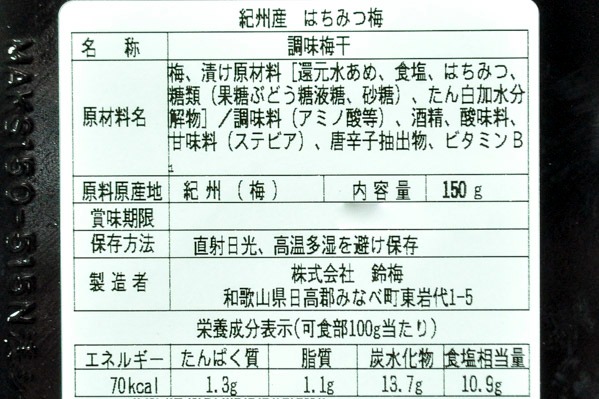 紀州産 はちみつ梅
名称 調味梅干
原材料名 梅、漬け原材料［還元水あめ、食塩、はちみつ、
糖類（果糖ぶどう糖液糖、砂糖）、たん白加水分
解物］／調味料（アミノ酸等）、酒精、酸味料、
甘味料（ステビア）、唐辛子抽出物、ビタミンB
1
原料原産地 紀州（梅） 内容量 150g
賞味期限
保存方法 直射日光、高温多湿を避け保存
製造者 株式会社 鈴梅
和歌山県日高郡みなべ町東岩代1-5
栄養成分表示(可食部100g当たり)
エネルギー たんぱく質 脂質 炭水化物 食塩相当量
70kcal 1.3g 1.1g 13.7g 10.9g